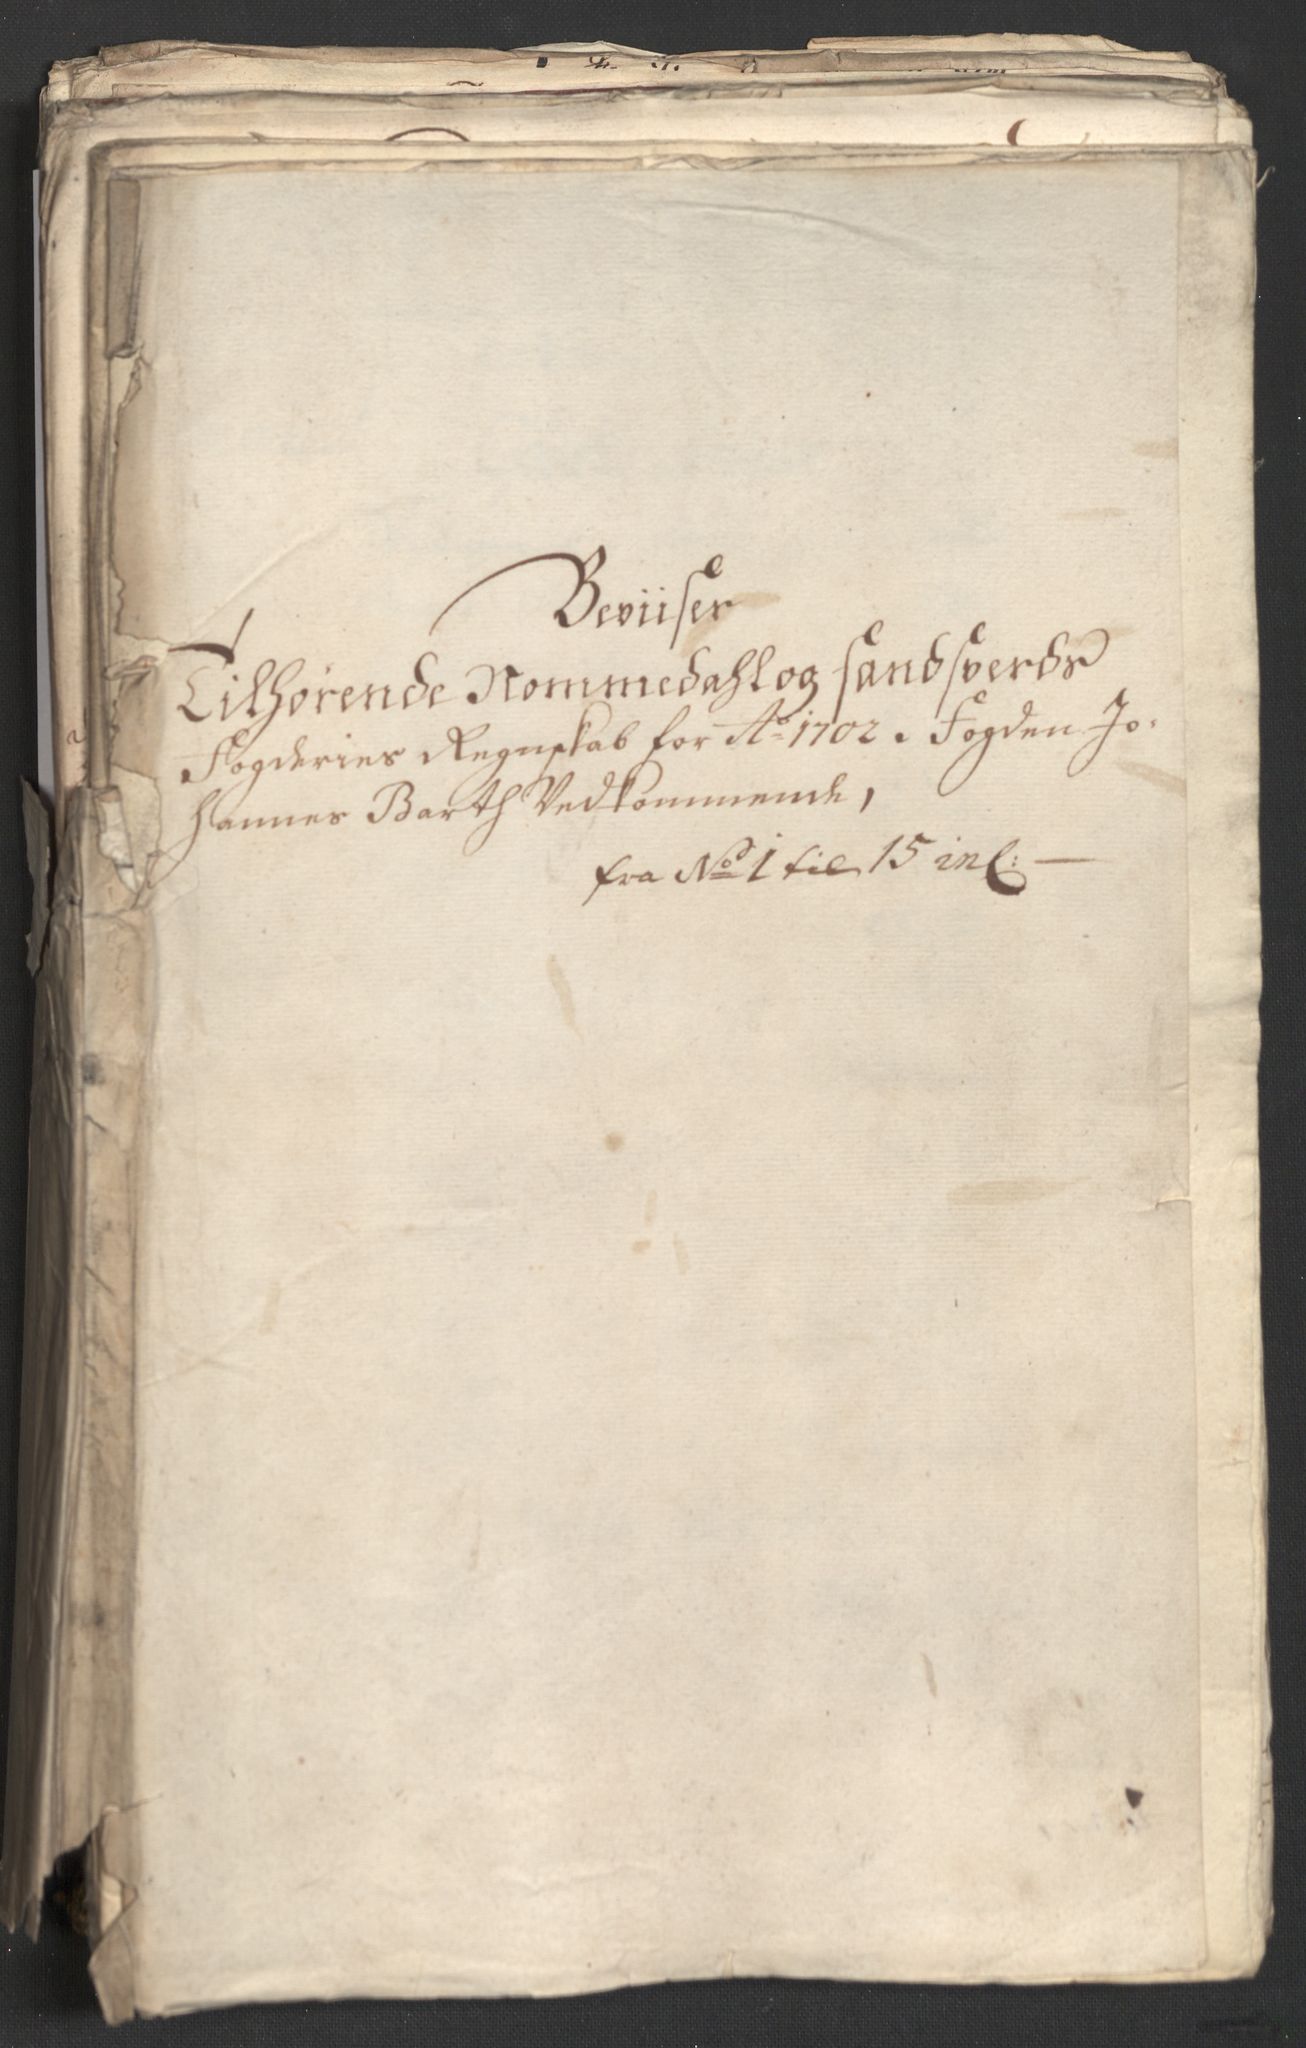 Beviiser
Tilhørende Nommedahl og Sandsverds
Fogderies Regnskab for Ao 1702. Fogden Jo-
hannes Barth Vedkommende,
fra No 1 til 15 incl: —